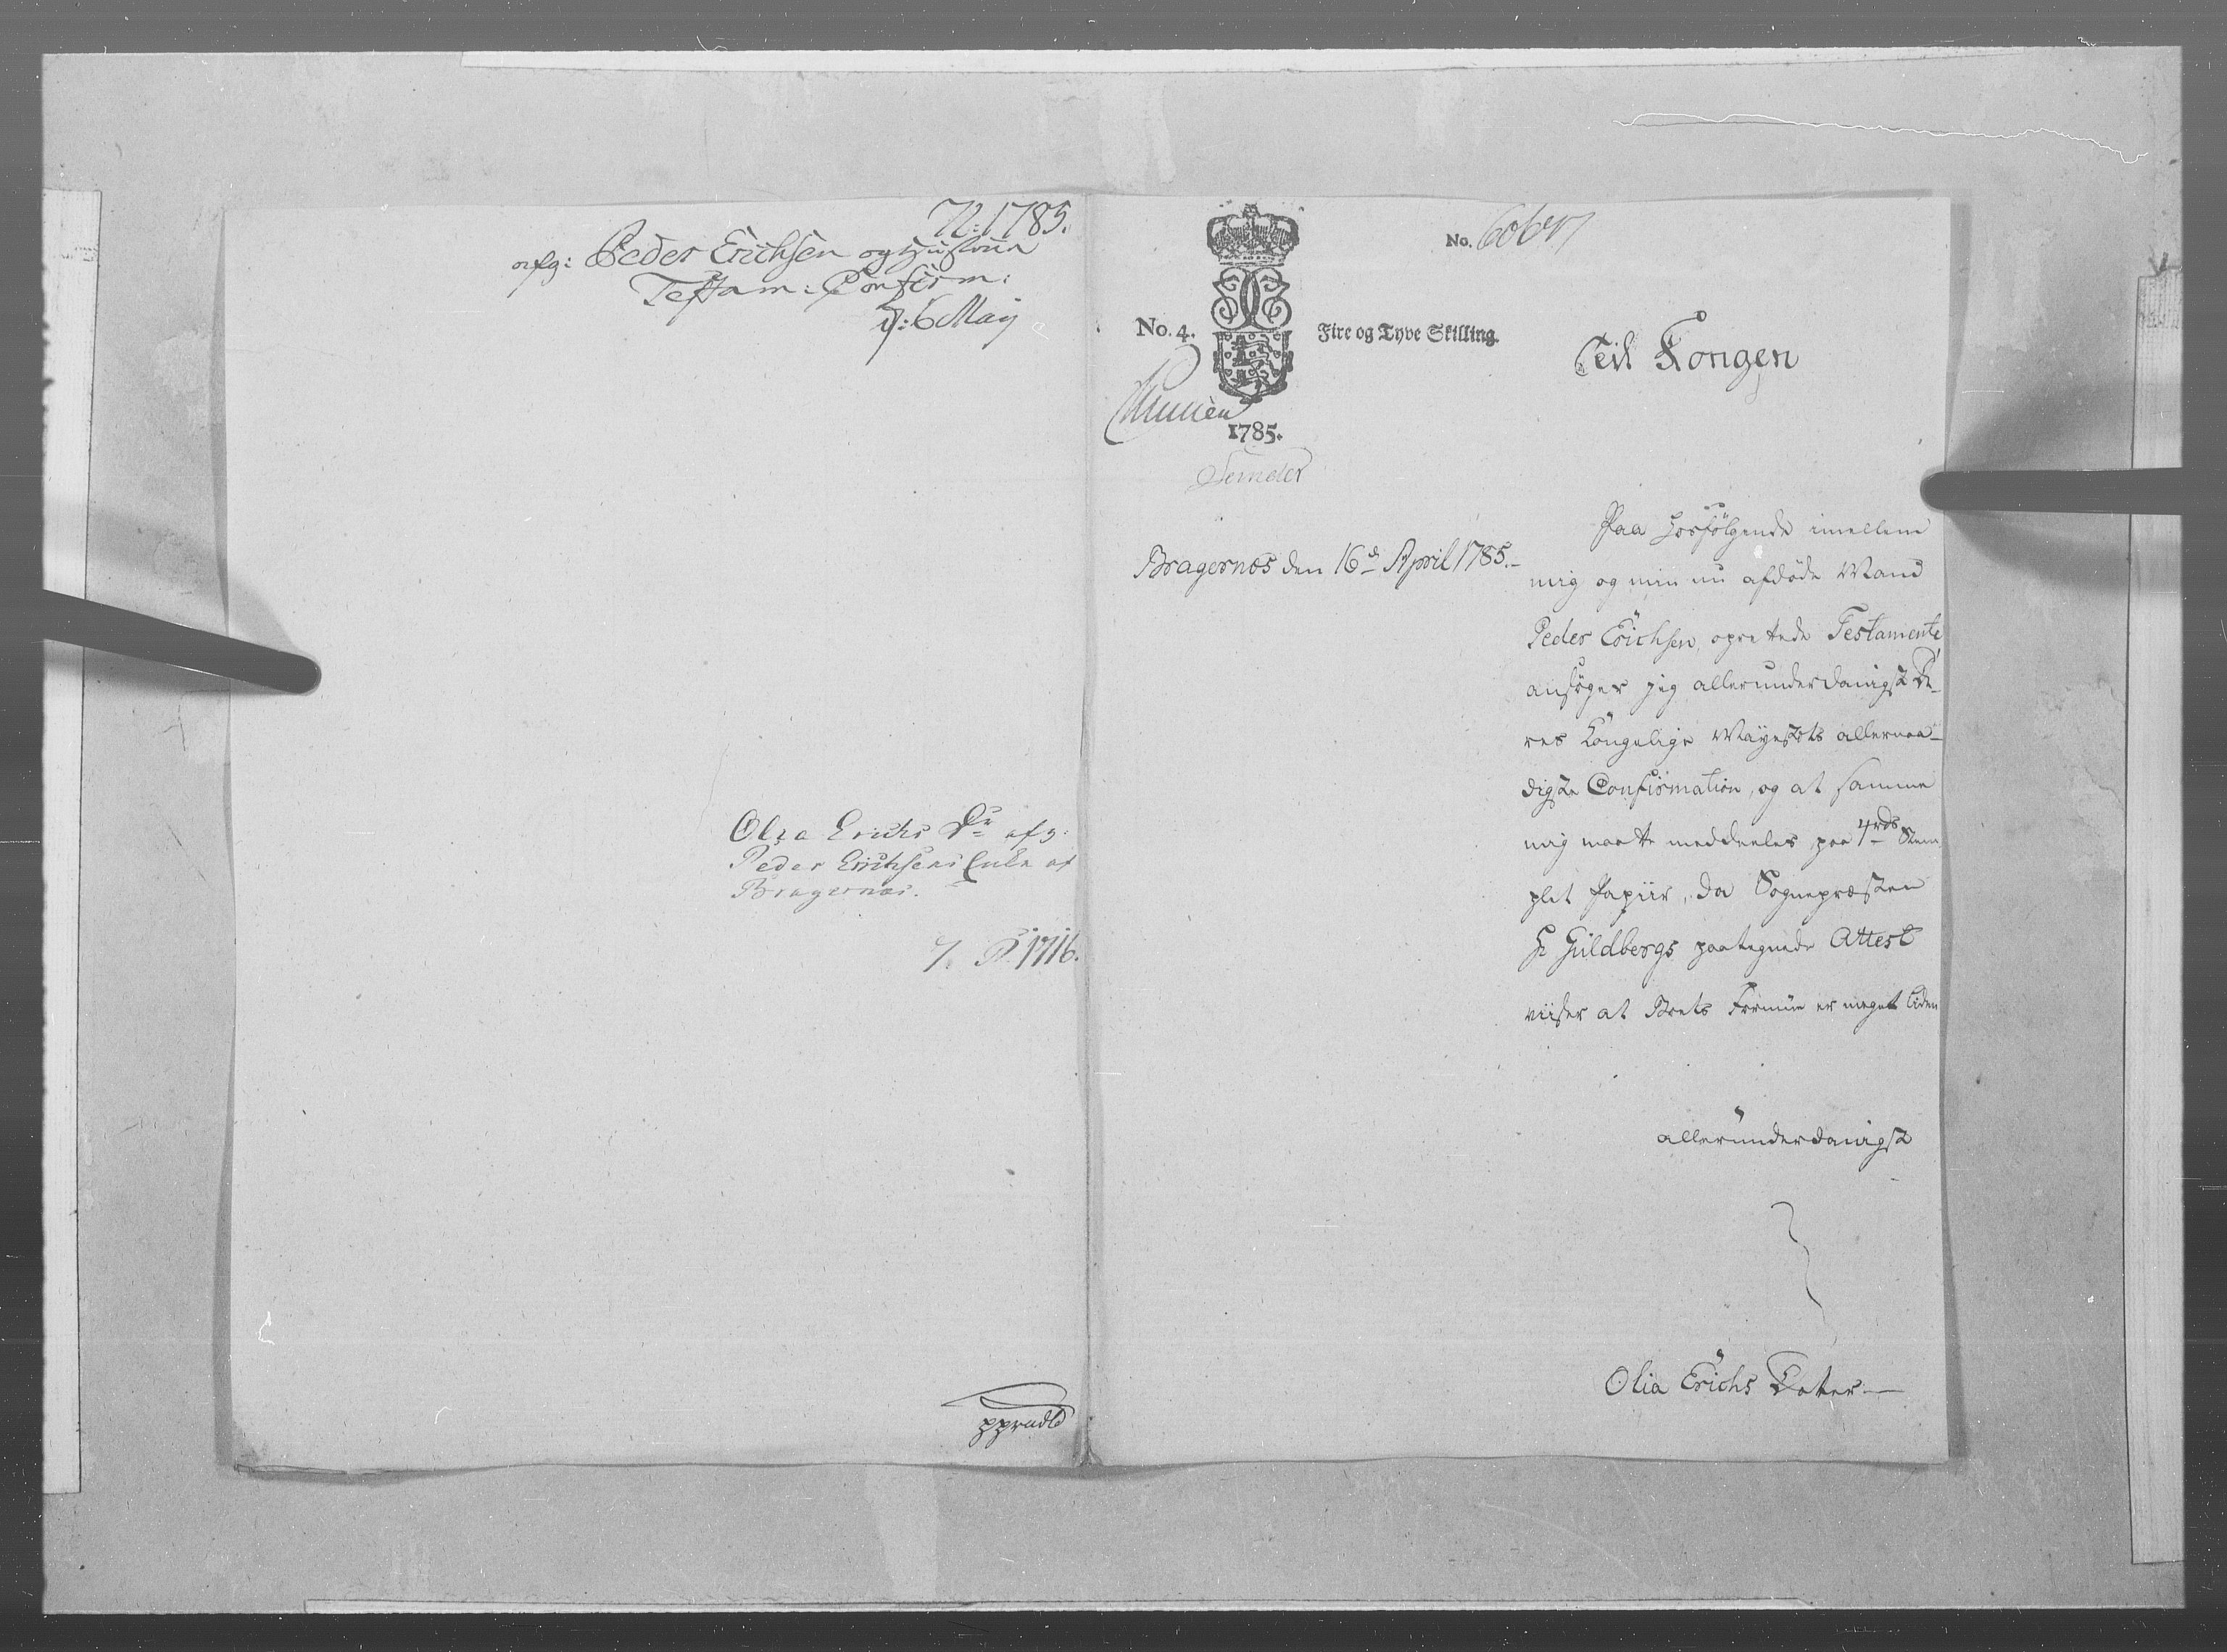 N: 1785.
afg: Peder Erichsen og Hustrue
Testam: Confirm:
D: 6 Maij
Olea Erichs Dr afg:
Peder Erichsens Enke af
Bragernæs.
N. 1716.
No. 4.
Fire og Tyve Skilling.
1785.
No.
Til Kongen
Bragernæs den 16d April 1785.
Paa hosfølgende imellem
mig og min nu afdøde Mand
Peder Erichsen, oprettede Testamente
ansøger jeg allerunderdanigst De-
res Kongelige Mayestets allernaa-
digste Confirmation, og at samme
mig maatte meddeeles paa 4 rds Stem
plet Papiir, da Sognepræsten
Hr Guldbergs paategnede Attest
viiser at Boets Formue er meget liden
allerunderdanigst
Olia Erichs Dotter